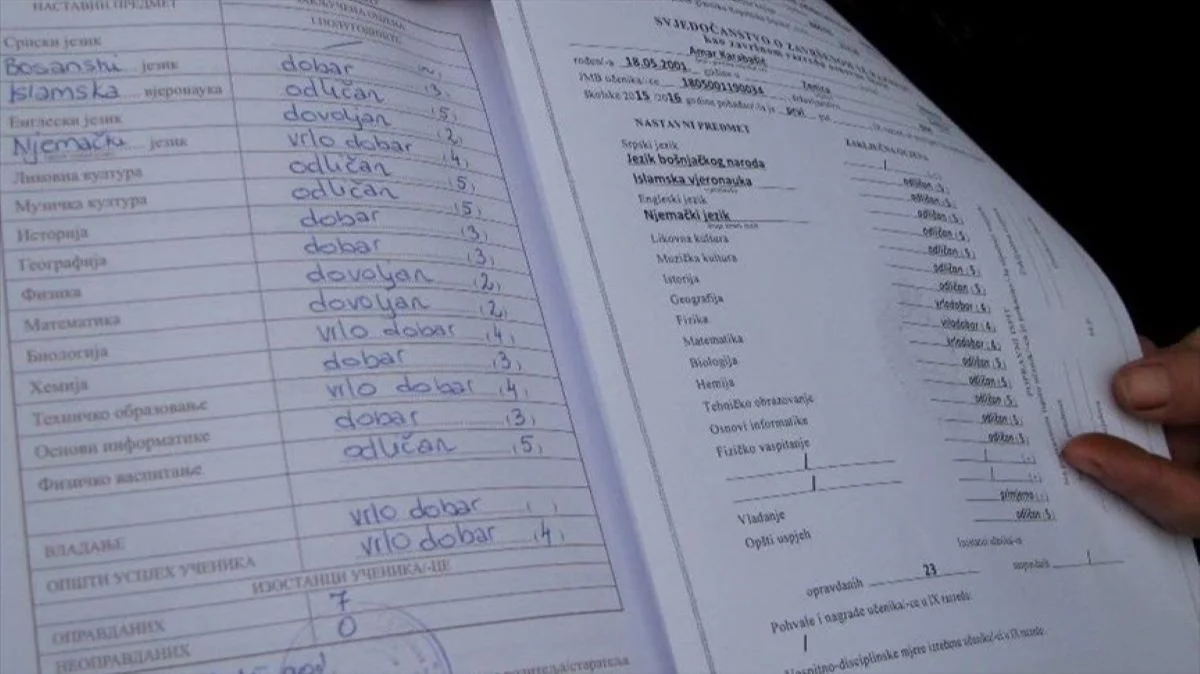 НАСТАВНИ ПРЕДМЕТ
I ПОЛУГОДИШТЕ
Српски језик /
Bosanski језик dobar (3)
Islamska вјеронаука odličan (5)
Енглески језик dovoljan (2)
Njemački језик vrlo dobar (4)
Ликовна култура odličan (5)
Музичка култура odličan (5)
Историја dobar (3)
Географија dobar (3)
Физика dovoljan (2)
Математика dovoljan (2)
Биологија vrlo dobar (4)
Хемија dobar (3)
Техничко образовање vrlo dobar (4)
Основи информатике dobar (3)
Физичко васпитање odličan (5)
ВЛАДАЊЕ vrlo dobar ( )
ОПШТИ УСПЈЕХ УЧЕНИКА vrlo dobar (4)
ИЗОСТАНЦИ УЧЕНИКА/-ЦЕ
ОПРАВДАНИХ 7
НЕОПРАВДАНИХ 0
SVJEDOČANSTVO O ZAVRŠENOM
kao završnom razredu
Amar Karabašić
rođen/-a 18.05.2001 godine u Zenica
JMB učenika/-ce 1805001190034
školske 2015 /2016 godine pohađao/-la je prvi put
NASTAVNI PREDMET ZAKLJUČNA OCJENA
Srpski jezik /
Jezik bošnjačkog naroda odličan (5)
Islamska vjeronauka odličan (5)
Engleski jezik odličan (5)
Njemački jezik odličan (5)
Likovna kultura odličan (5)
Muzička kultura odličan (5)
Istorija odličan (5)
Geografija vrlodobar (4)
Fizika vrlodobar (4)
Matematika vrlodobar (4)
Biologija odličan (5)
Hemija odličan (5)
Tehničko obrazovanje odličan (5)
Osnovi informatike odličan (5)
Fizičko vaspitanje odličan (5)
/ / (-)
/ / (-)
Vladanje primjerno (-)
Opšti uspjeh odličan (5)
Izostanci učenika/-ce
opravdanih 23 neopravdanih /
Pohvale i nagrade učenika/-ce u IX razredu:
/
Vaspitno-disciplinske mjere izrečene učeniku/-ci u IX razredu:
POPRAVNI ISPIT